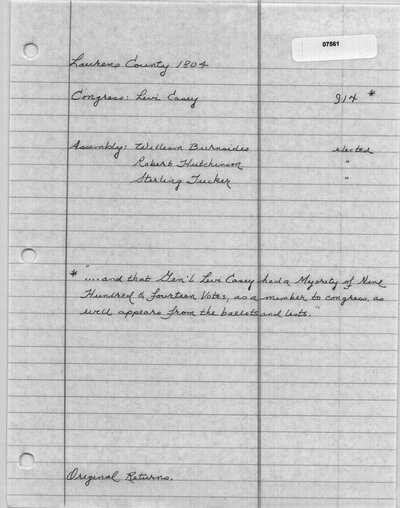 07561
Laurens County 1804
Congress: Levi Casey 914 *
Assembly: William Burnsides elected
Robert Hutchinson "
Sterling Tucker "
* "....and that Gen'l Levi Casey had a Majority of Nine
Hundred & fourteen Votes, as a member to congress as
well appears from the ballots and lists."
Original Returns.